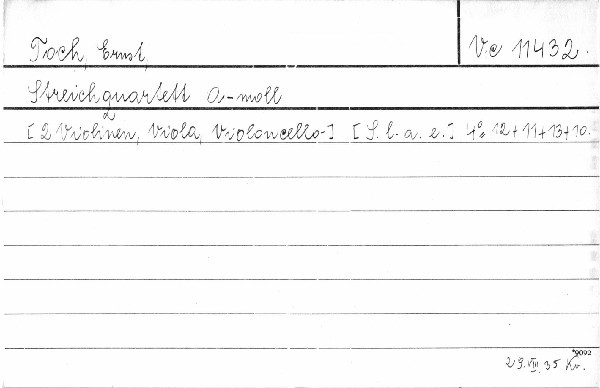 Toch, Ernst,
Vc 11432.
Streichquartett a-moll
[2 Violinen, Viola, Violoncello-] [S. l. a. e.] 4° 12+11+13+10.
*9092
29.VIII.35 Kr.